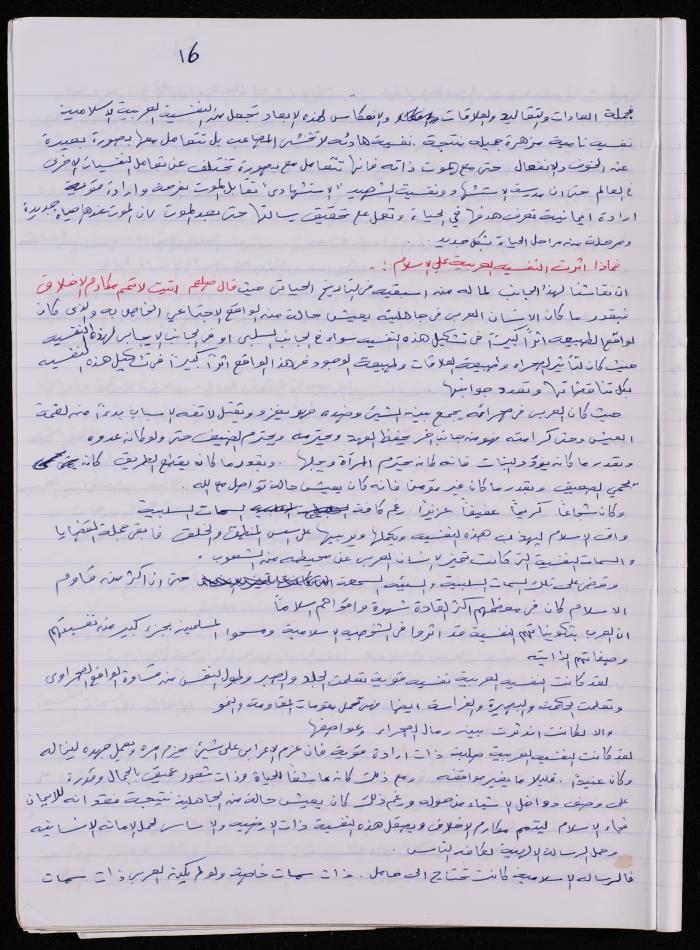 ١٦
فجملة العادات والتقاليد والعلاقات وانعكاس لهذه الابعاد تجعل من النفسية العربية الاسلامية
نفسيه نامية مزهرة جميله منتجة . نفسية هادئه لا تخشى المصاعب بل تتعامل معها بصورة بعيدة
عن الخوف والانفعال حتى مع الموت ذاته فانها تتعامل مع بصورة تختلف عن تعامل النفسيات الاخرى
في العالم حتى ان مدرسة الاستشهاد ونفسية الشهيد "الاستشهادي" تقابل الموت بفرحة وارادة قوية
ارادة ايمانية تعرف هدفها في الحياة وتعمل على تحقيق رسالتها حتى بعد الموت لان الموت عندها حياة جديدة
ومرحلة من مراحل الحياة بشكل جديد ..
فماذا اثرت النفسيه العربية على الاسلام ؟ .
ان نقاشنا لهذا الجانب لما له من اسبقية في التاريخ الحياتي حيث قال صلعم اتيت لاتمم مكارم الاخلاق
فبقدر ما كان الانسان العربي في جاهليته يعيش حالة من الواقع الاجتماعي الخاص به والذي كان
لواقع الطبيعه اثراً كبيراً في تشكيل هذه النفسيه سواء في الجانب السلبي او في الجانب الايجابي لهذه النفسيه
حيث كان لتأثير الصحراء وطبيعة العلاقات وطبيعة الوجود في هذا الواقع اثراً كبيراً في تشكيل هذه النفسيه
بكل تناقضاتها وتعدد جوانبها .
حيث كان العربي في صحرائه يجمع بين الشيئ وضده فهو يغزو ويقتل لاتفه الاسباب بدءاً من لقمة
العيش وحتى كرامته فهو من جانب اخر يحفظ العهد ويحترمه ويحترم الضيف حتى ولو كان عدوه
وبقدر ما كان يوؤد البنات فانه كان يحترم المرأة ويجلها . وبقدر ما كان يقطع الطريق كان
يحمي الضعيف وبقدر ما كان غير مؤمن فانه كان يعيش حالة تواصل مع الله
وكان شجاعاً كريماً عفيفاً عزيزاً رغم كافة السمات السلبية
واتى الاسلام ليهذب هذه النفسيه ويكملها ويربيها على اسس المنطق والخلق فابقى جملة القضايا
والسمات النفسية التي كانت تميز الانسان العربي عن محيطه من الشعوب .
وقضى على تلك السمات السلبية والسيئه السمعه حتى ان اكثر من قاوم
الاسلام كان في معظمهم اكثر القادة شهرة واقواهم اسلاماً
ان العرب بتكويناتهم النفسية قد اثروا في الشخصيه الاسلامية ومسحوا المسلمين بجزء كبير من نفسيتهم
وصفاتهم الذاتيه
لقد كانت النفسيه العربية نفسيه قوية تعلمت الجلد والصبر وطول النفس من قساوة الواقع الصحراوي
وتعلمت الحكمة والبصيرة والفراسة ايضا فهي تحمل مقومات المقاومة والنمو
والا لكانت اندثرت بين رمال الصحراء وعواصفها
لقد كانت النفسيه العربية صلبة ذات ارادة قوية فان عزم الاعرابي على شيئ حزم امره وعمل جهده لينا له
وكان عنيداً . قليلا ما يغير مواقفه ومع ذلك كان عاشقاً للحياة وذات شعور عميق بالجمال وقدرة
على وصف دواخل الاشياء من حوله ورغم ذلك كان يعيش حالة من الجاهلية نتيجة فقدانه للايمان
فجاء الاسلام ليتمم مكارم الاخلاق ويصقل هذه النفسية ذات الارضيه والاساس لحمل الامانه الانسانيه
وحمل الرسالة الالهية لكافة الناس .
فالرساله الاسلامية كانت تحتاج الى حامل . ذات سمات خاصة ولو لم يكن العربي ذات سمات